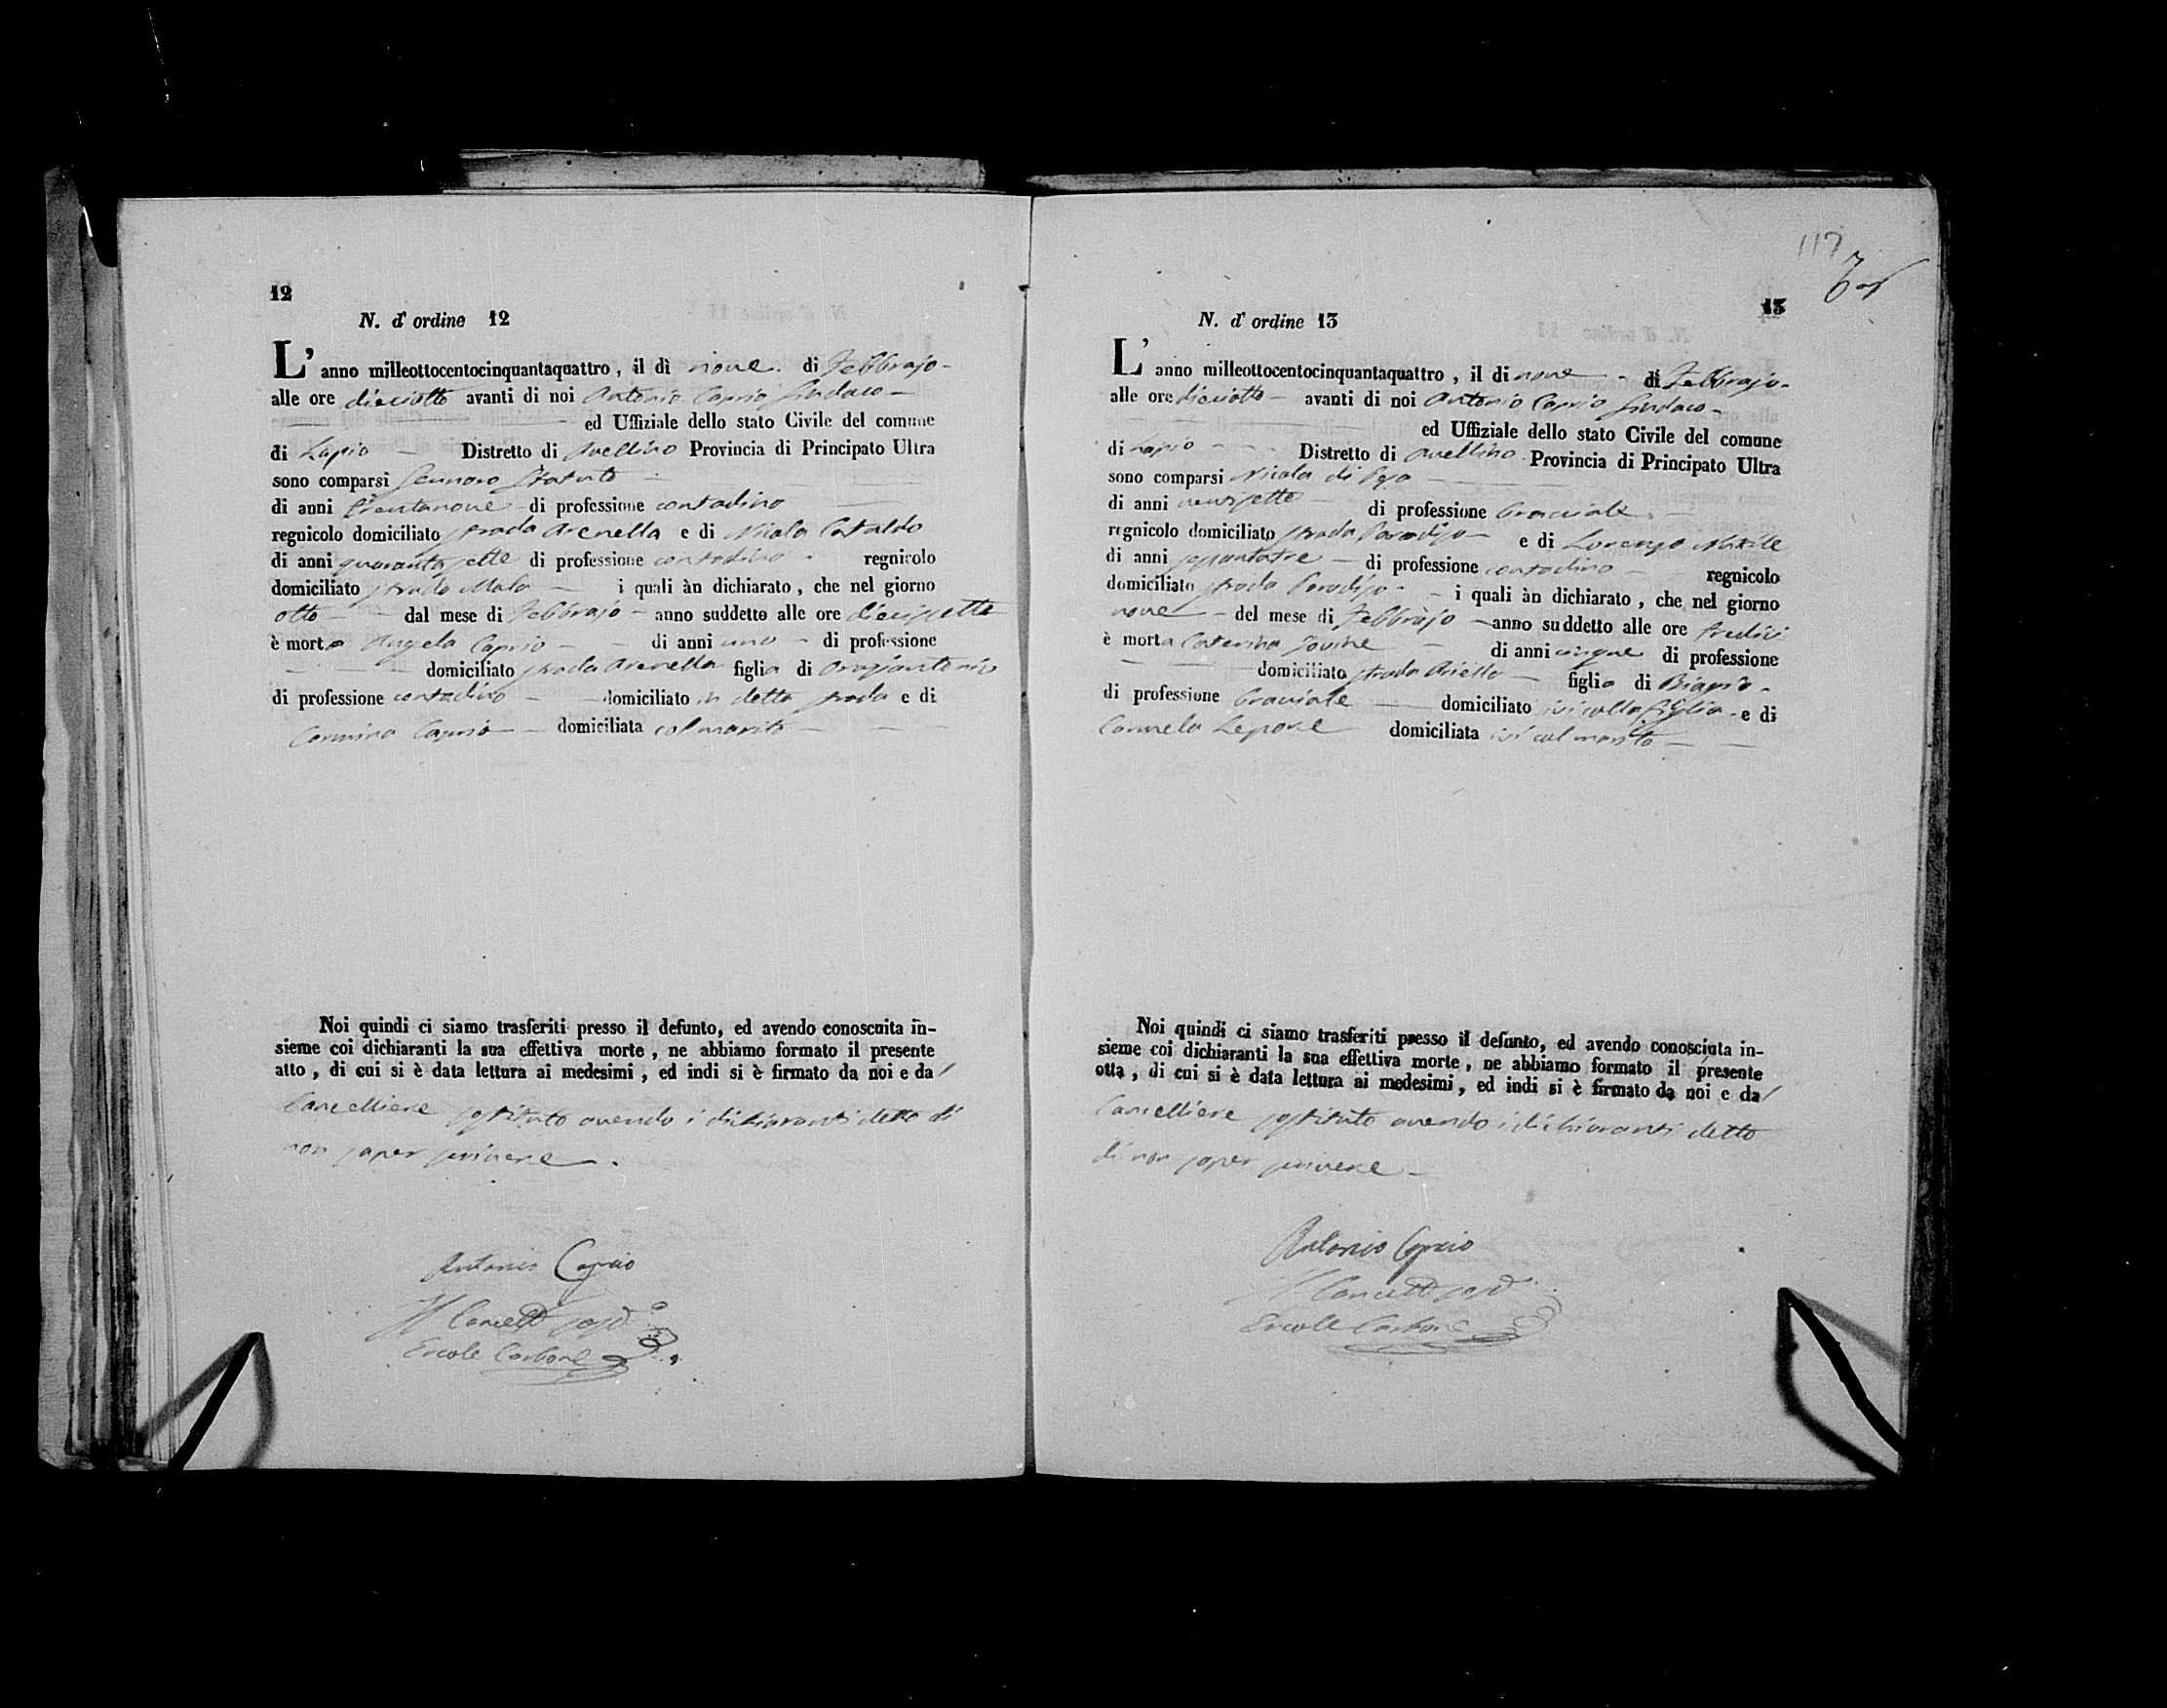 12
N. d' ordine 12
L' anno milleottocentocinquantaquattro, il dì nove di Febbrajo
alle ore dieciotto avanti di noi Antonio Caprio Sindaco
ed Uffiziale dello stato Civile del comune
di Lapio Distretto di Avellino Provincia di Principato Ultra
sono comparsi Gennaro Statuto
di anni trentanove di professione contadino
regnicolo domiciliato strada Arenella e di Nicola Cataldo
di anni quarantasette di professione contadino regnicolo
domiciliato strada Mala i quali àn dichiarato, che nel giorno
otto dal mese di Febbrajo anno suddetto alle ore diecisette
è morta Angela Caprio di anni uno di professione
domiciliato strada Arenella figlia di Oraziantonio
di professione contadino domiciliato in detta strada e di
Carmina Caprio domiciliata col marito
Noi quindi ci siamo trasferiti presso il defunto, ed avendo conosciuta in-
sieme coi dichiaranti la sua effettiva morte, ne abbiamo formato il presente
atto, di cui si è data lettura ai medesimi, ed indi si è firmato da noi e da
Cancelliere sostituto avendo i dichiaranti detto di
non saper scrivere.
Antonio Caprio
Il Cancell sost
Ercole Carbone
117
13
N. d' ordine 13
L' anno milleottocentocinquantaquattro, il di nove di Febbrajo
alle ore dieciotto avanti di noi Antonio Caprio Sindaco
ed Uffiziale dello stato Civile del comune
di Lapio Distretto di Avellino Provincia di Principato Ultra
sono comparsi Nicola di
di anni ventisette di professione bracciale
regnicolo domiciliato strada Paradiso e di Lorenzo Natale
di anni sessantatre di professione contadino regnicolo
domiciliato strada Paradiso i quali àn dichiarato, che nel giorno
nove del mese di Febbrajo anno suddetto alle ore tredici
è morta Caterina Jovine di anni cinque di professione
domiciliato strada Ariella figlia di Biagio
di professione bracciale domiciliato ivi colla figlia e di
Carmela Lepore domiciliata ivi col marito
Noi quindi ci siamo trasferiti presso il defunto, ed avendo conosciuta in-
sieme coi dichiaranti la sua effettiva morte, ne abbiamo formato il presente
otta, di cui si è data lettura ai medesimi, ed indi si è firmato da noi e da
Cancelliere sostituto avendo i dichiaranti detto
di non saper scrivere
Antonio Caprio
Il Cancell sost
Ercole Carbone